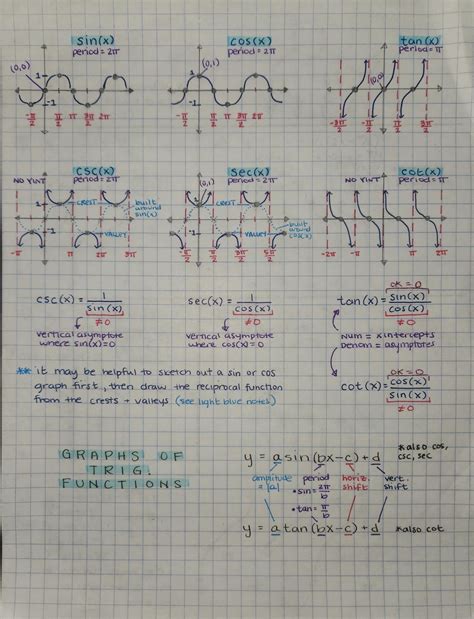 sin(x)
period = 2π
(0,0)
1
-1
-π/2 π/2 π 3π/2 2π
cos(x)
period = 2π
(0,1)
1
-1
-π/2 π/2 π 3π/2 2π
tan(x)
period = π
(0,0)
-3π/2 -π/2 π/2 3π/2
csc(x)
period = 2π
NO YINT
CREST
built around sin(x)
1
-1
VALLEY
-π π 2π 3π
sec(x)
period = 2π
(0,1)
CREST
built around cos(x)
VALLEY
-π/2 π/2 3π/2 5π/2
cot(x)
period = π
NO YINT
-2π -π π 2π
csc(x) = 1/sin(x)
≠0
vertical asymptote
where sin(x)=0
sec(x) = 1/cos(x)
≠0
vertical asymptote
where cos(x)=0
OK = 0
tan(x) = sin(x)/cos(x)
≠0
num = x intercepts
Denom = asymptotes
OK = 0
cot(x) = cos(x)/sin(x)
≠0
** it may be helpful to sketch out a sin or cos
graph first, then draw the reciprocal function
from the crests + valleys (see light blue notes)
GRAPHS OF
TRIG.
FUNCTIONS
y = a sin(bx-c)+d
*also cos,
csc, sec
amplitude
= |a|
period
• sin = 2π/b
• tan = π/b
horiz.
shift
vert.
shift
y = a tan(bx-c)+d
*also cot